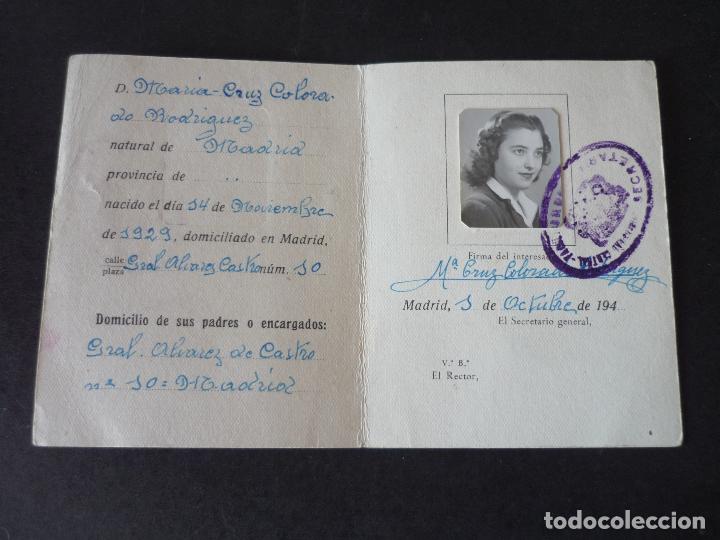 D. Maria-Cruz Colora-
do Rodriguez
natural de Madrid
provincia de ..
nacido el día 14 de Noviembre
de 1929, domiciliado en Madrid,
calle
plaza Gral Alvarez Castro núm. 10
Domicilio de sus padres o encargados:
Gral. Alvarez de Castro
nº 10 = Madrid
Firma del interesado
Mª Cruz Colorado
Madrid, 1 de Octubre de 194
El Secretario general,
V.º B.º
El Rector,
SECRETARIA
todocoleccion.net